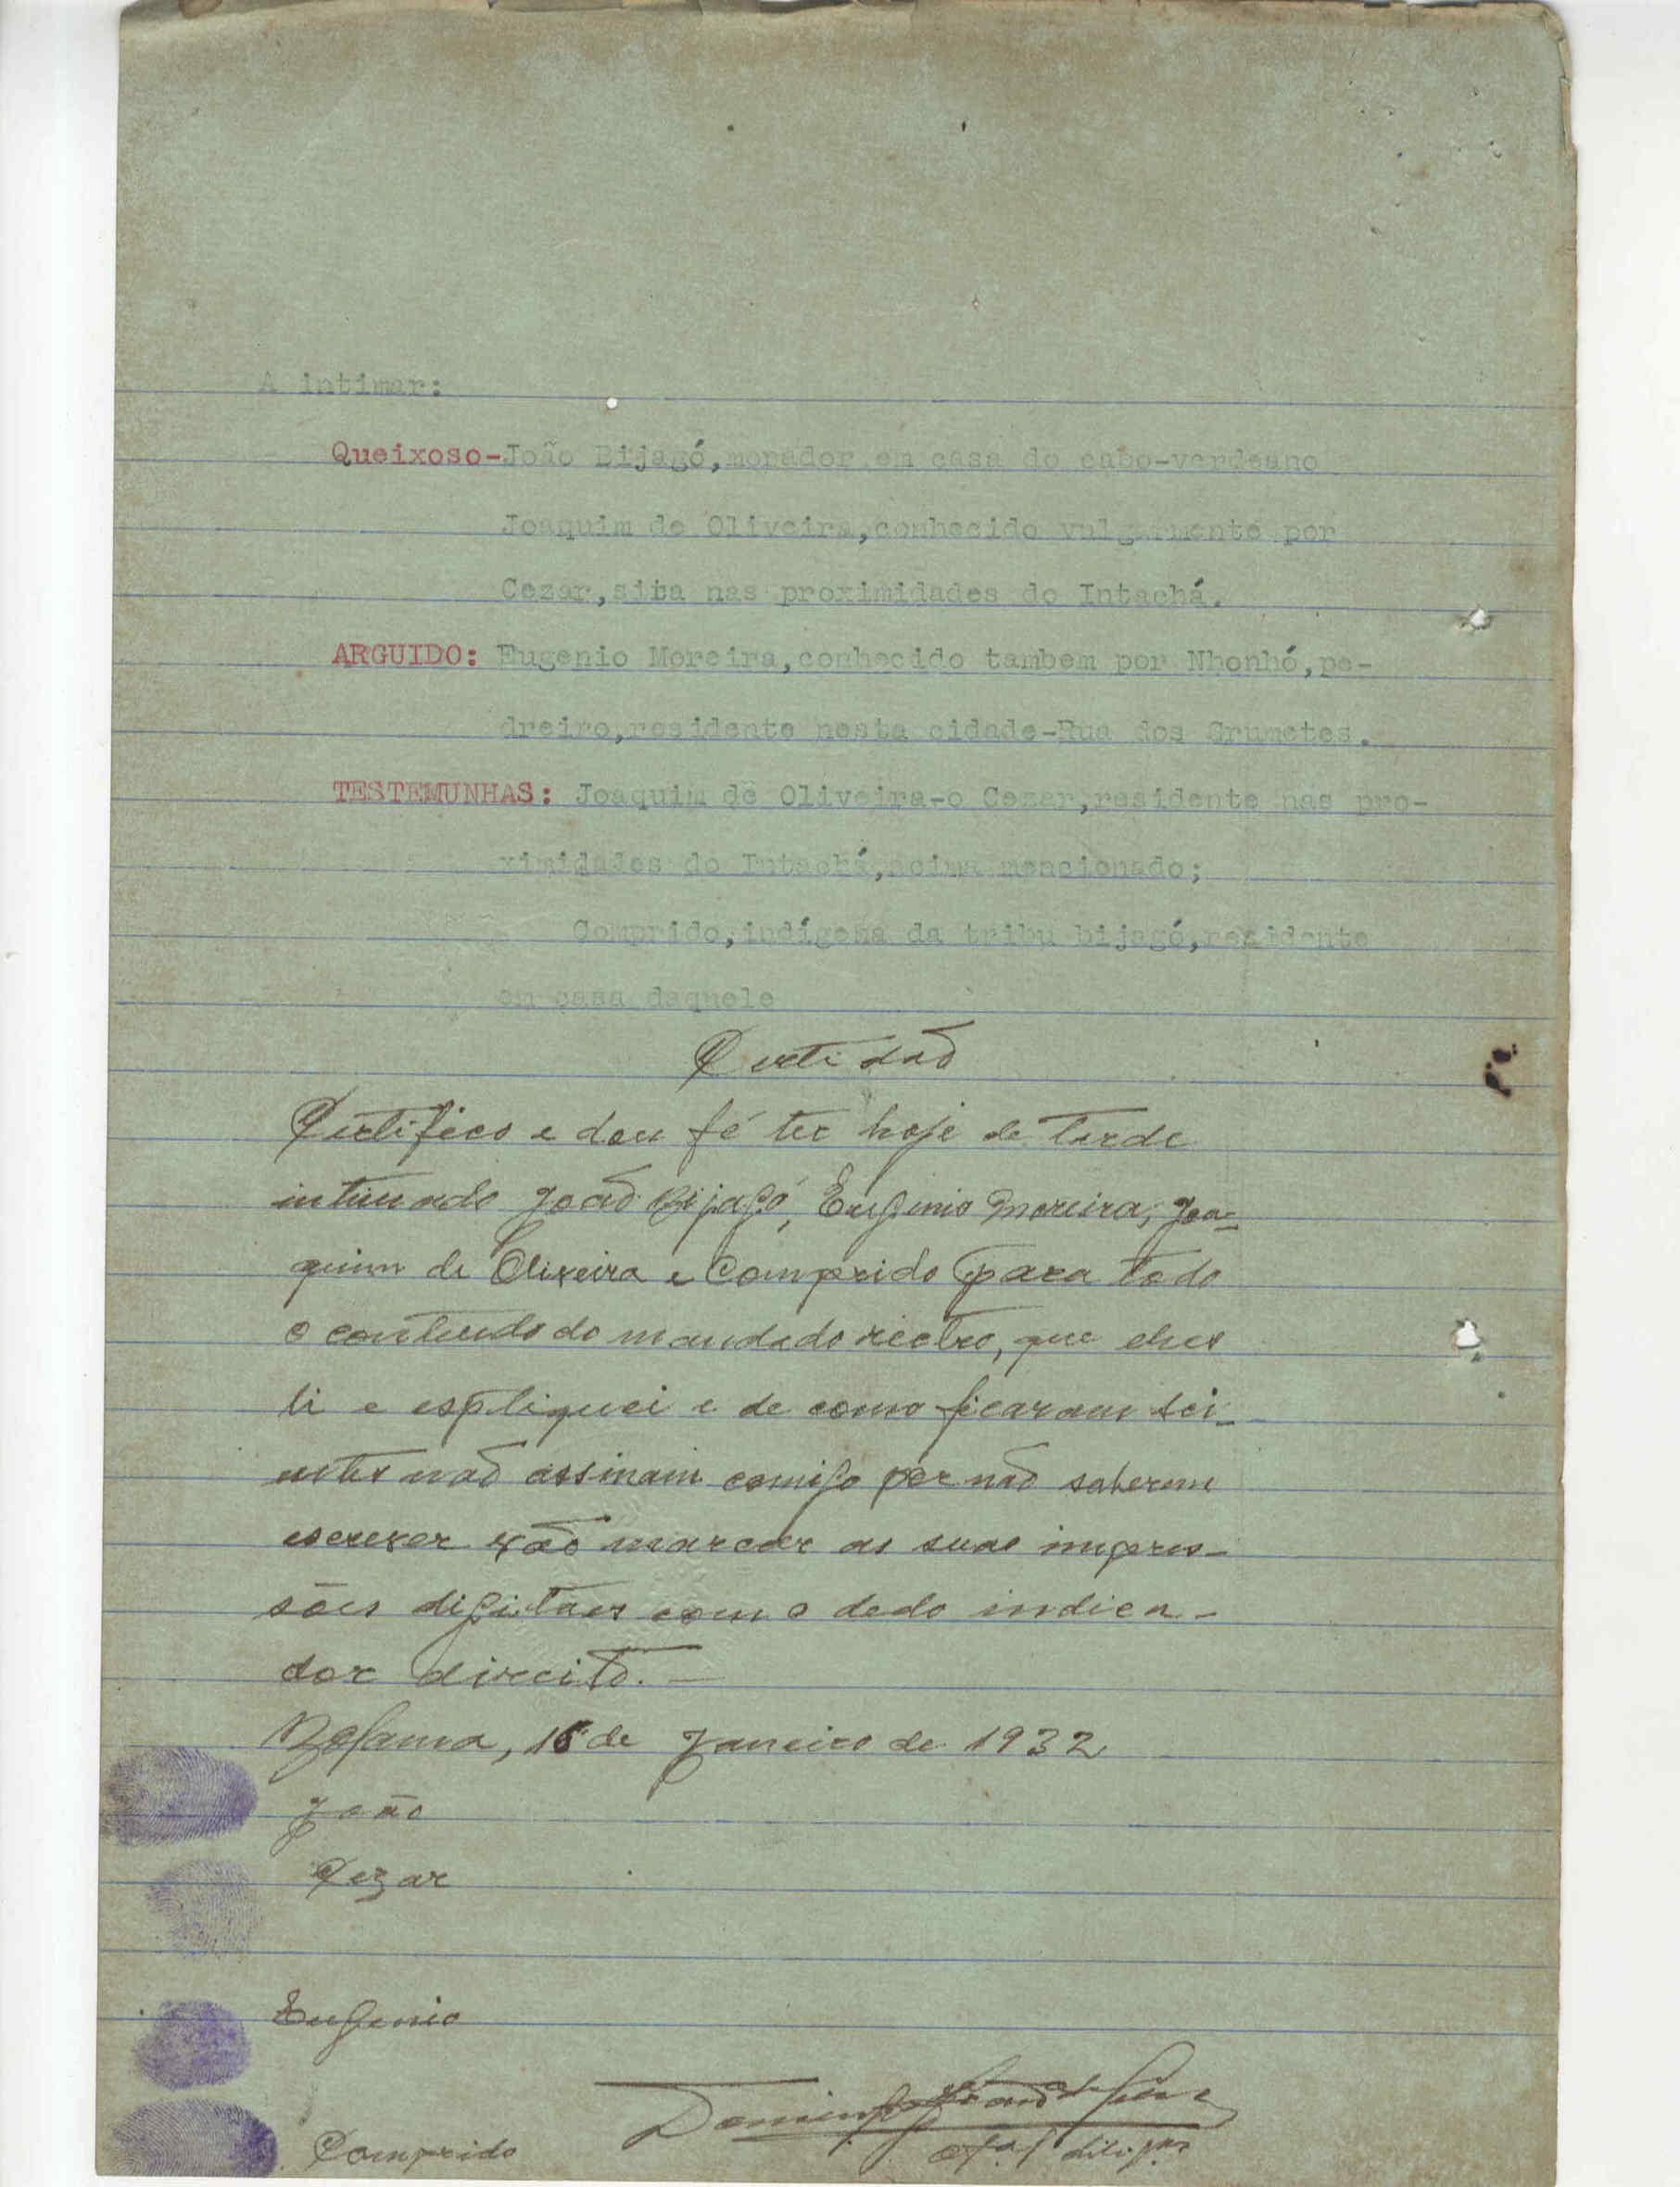 A intimar:
Queixoso-João Bijagó,morador em casa do cabo-verdeano
Joaquim de Oliveira,conhecido vulgarmente por
Cezar,sita nas proximidades do Intachá.
ARGUIDO: Eugenio Moreira,conhecido tambem por Nhonhó,pe-
dreiro,residente nesta cidade-Rua dos Grumetes.
TESTEMUNHAS: Joaquim de Oliveira-o Cezar,residente nas pro-
ximidades do Intachá,acima mencionado;
Comprido,indígena da tribu bijagó,residente
em casa daquele
Certidão
Certifico e dou fé ter hoje de tarde
intimado João Bijagó, Eugenio Moreira, Joa-
quim de Oliveira e Comprido para todo
o conteudo do mandado rectro, que elhes
li e espliquei e de como ficaram sci-
entes não assinam comigo por não saberem
escrever vão marcar as suas impres-
sões digitaes com o dedo indica-
dor direito. —
Bolama, 16 de Janeiro de 1932
João
Cezar
Eugenio
Domingos
Comprido